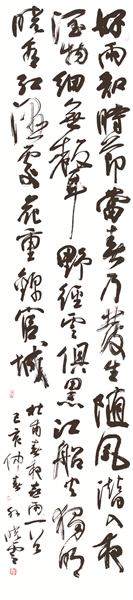 好雨知時節當春乃發生随風潛入夜
潤物細無聲野徑雲俱黑江船火獨明
曉看紅濕處花重錦官城
杜甫春夜喜雨一首
己亥仲春 曉雲